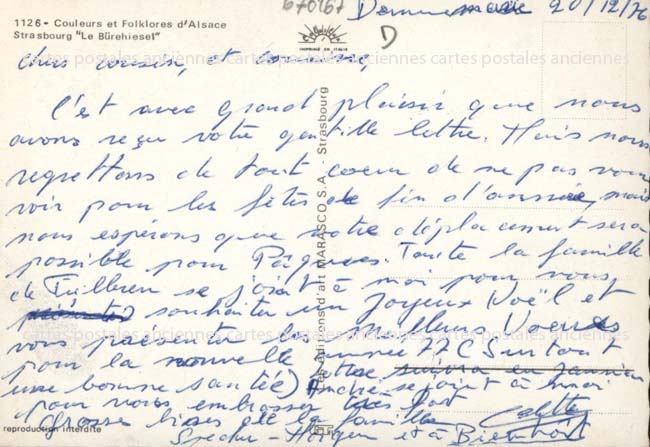 670167
1126 - Couleurs et Folklores d'Alsace
Strasbourg "Le Bürehiesel"
IMPRIMÉ EN ITALIE
D
20/12/76
chers cousins, et cousine,
C'est avec grand plaisir que nous
avons reçu votre gentille lettre. Mais nous
regrettons de tout coeur de ne pas vous
voir pour les fêtes de fin d'année, mais
nous espérons que votre déplacement sera
possible pour Pâques. Toute la famille
de se joint à moi pour vous
souhaiter un Joyeux Noël et
vous présenter les meilleurs Voeux
pour la nouvelle année (Surtout
une bonne santé) lettre suivra en janvier
André se joint à moi
pour vous embrasser très fort
Grosse bises de la famille
et à Bientôt
Les éditions d'art MARASCO S.A. - Strasbourg
reproduction interdite
cartes postales anciennes cartes postales anciennes cartes postales anciennes
cartes postales anciennes cartes postales anciennes cartes postales anciennes